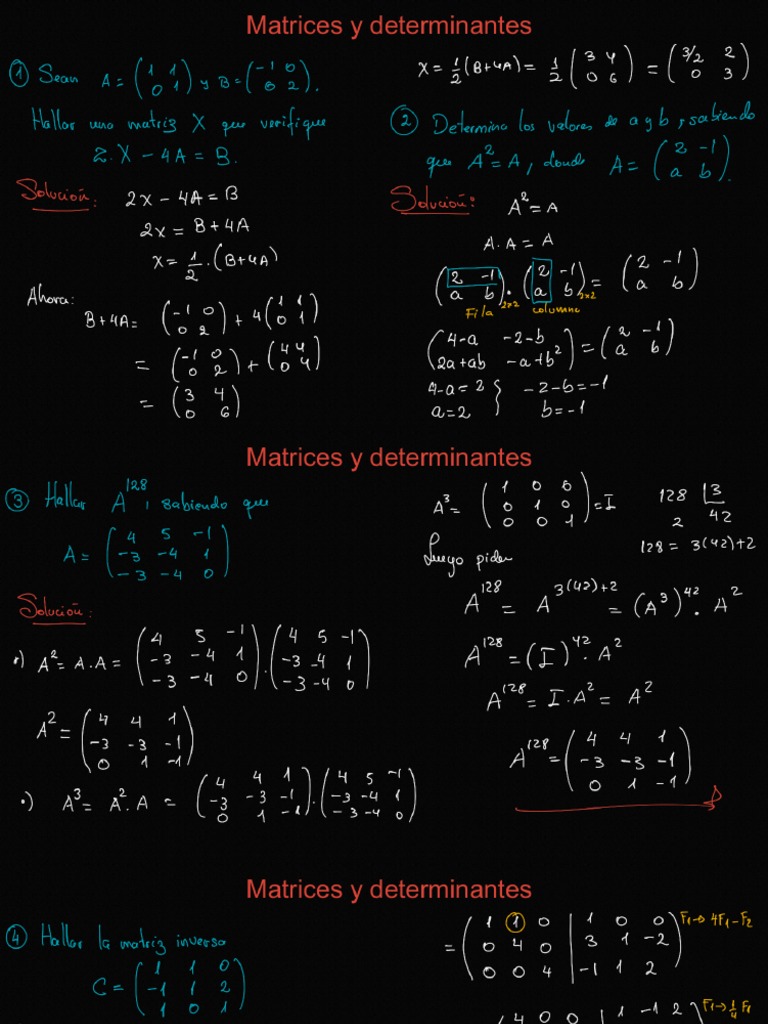 Matrices y determinantes
① Sean A = (1 1; 0 1) y B = (-1 0; 0 2).
Hallar una matriz X que verifique
2·X - 4A = B.
Solución:
2X - 4A = B
2X = B + 4A
X = 1/2 · (B + 4A)
Ahora:
B + 4A = (-1 0; 0 2) + 4(1 1; 0 1)
= (-1 0; 0 2) + (4 4; 0 4)
= (3 4; 0 6)
X = 1/2 (B + 4A) = 1/2 (3 4; 0 6) = (3/2 2; 0 3)
② Determina los valores de a y b, sabiendo
que A² = A, donde A = (2 -1; a b).
Solución:
A² = A
A·A = A
(2 -1; a b)₂ₓ₂ · (2 -1; a b)₂ₓ₂ = (2 -1; a b)
Fila columna
(4-a -2-b; 2a+ab -a+b²) = (2 -1; a b)
4-a = 2 } -2-b = -1
a = 2 b = -1
Matrices y determinantes
③ Hallar A¹²⁸, sabiendo que
A = (4 5 -1; -3 -4 1; -3 -4 0)
Solución:
•) A² = A·A = (4 5 -1; -3 -4 1; -3 -4 0) · (4 5 -1; -3 -4 1; -3 -4 0)
A² = (4 4 1; -3 -3 -1; 0 1 -1)
•) A³ = A²·A = (4 4 1; -3 -3 -1; 0 1 -1) · (4 5 -1; -3 -4 1; -3 -4 0)
A³ = (1 0 0; 0 1 0; 0 0 1) = I
128 |3
2 42
128 = 3(42)+2
Luego piden
A¹²⁸ = A³⁽⁴²⁾⁺² = (A³)⁴² · A²
A¹²⁸ = (I)⁴² · A²
A¹²⁸ = I·A² = A²
A¹²⁸ = (4 4 1; -3 -3 -1; 0 1 -1)
Matrices y determinantes
④ Hallar la matriz inversa
C = (1 1 0; -1 1 2; 1 0 1)
= (1 1 0 | 1 0 0; 0 4 0 | 3 1 -2; 0 0 4 | -1 1 2) F₁→4F₁-F₂
(4 0 0 | 1 -1 2 F₁→1/4 F₁